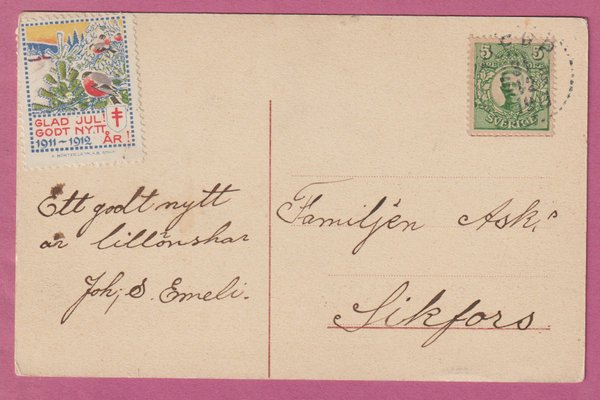 GLAD JUL!
GODT NYTT
1911~1912 ÅR!
5 5
SVERIGE
Ett godt nytt
år tillönskar
Joh, S. Emeli.
Familjen Ask,
Sikfors.